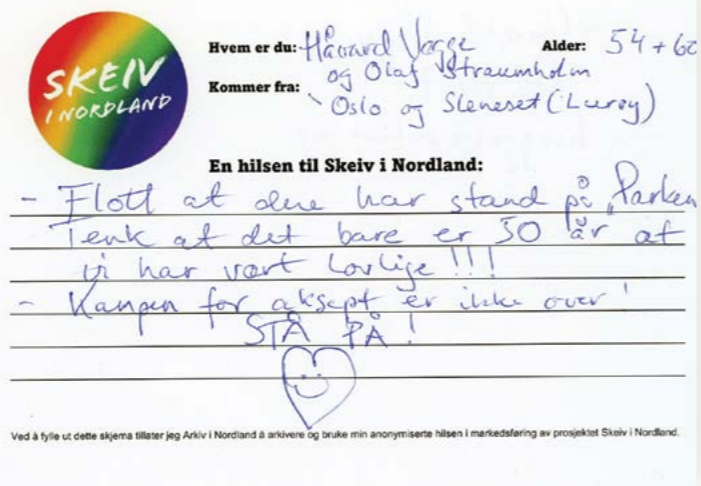 SKEIV
I NORDLAND
Hvem er du: Håvard Vegge Alder: 54 + 60
og Olaf Straumholm
Kommer fra: Oslo og Sleneset (Lurøy)
En hilsen til Skeiv i Nordland:
- Flott at dere har stand på "Parken
Tenk at det bare er 50 år at
vi har vært lovlige!!!
- Kampen for aksept er ikke over!
STÅ PÅ!
Ved å fylle ut dette skjema tillater jeg Arkiv i Nordland å arkivere og bruke min anonymiserte hilsen i markedsføring av prosjektet Skeiv i Nordland.